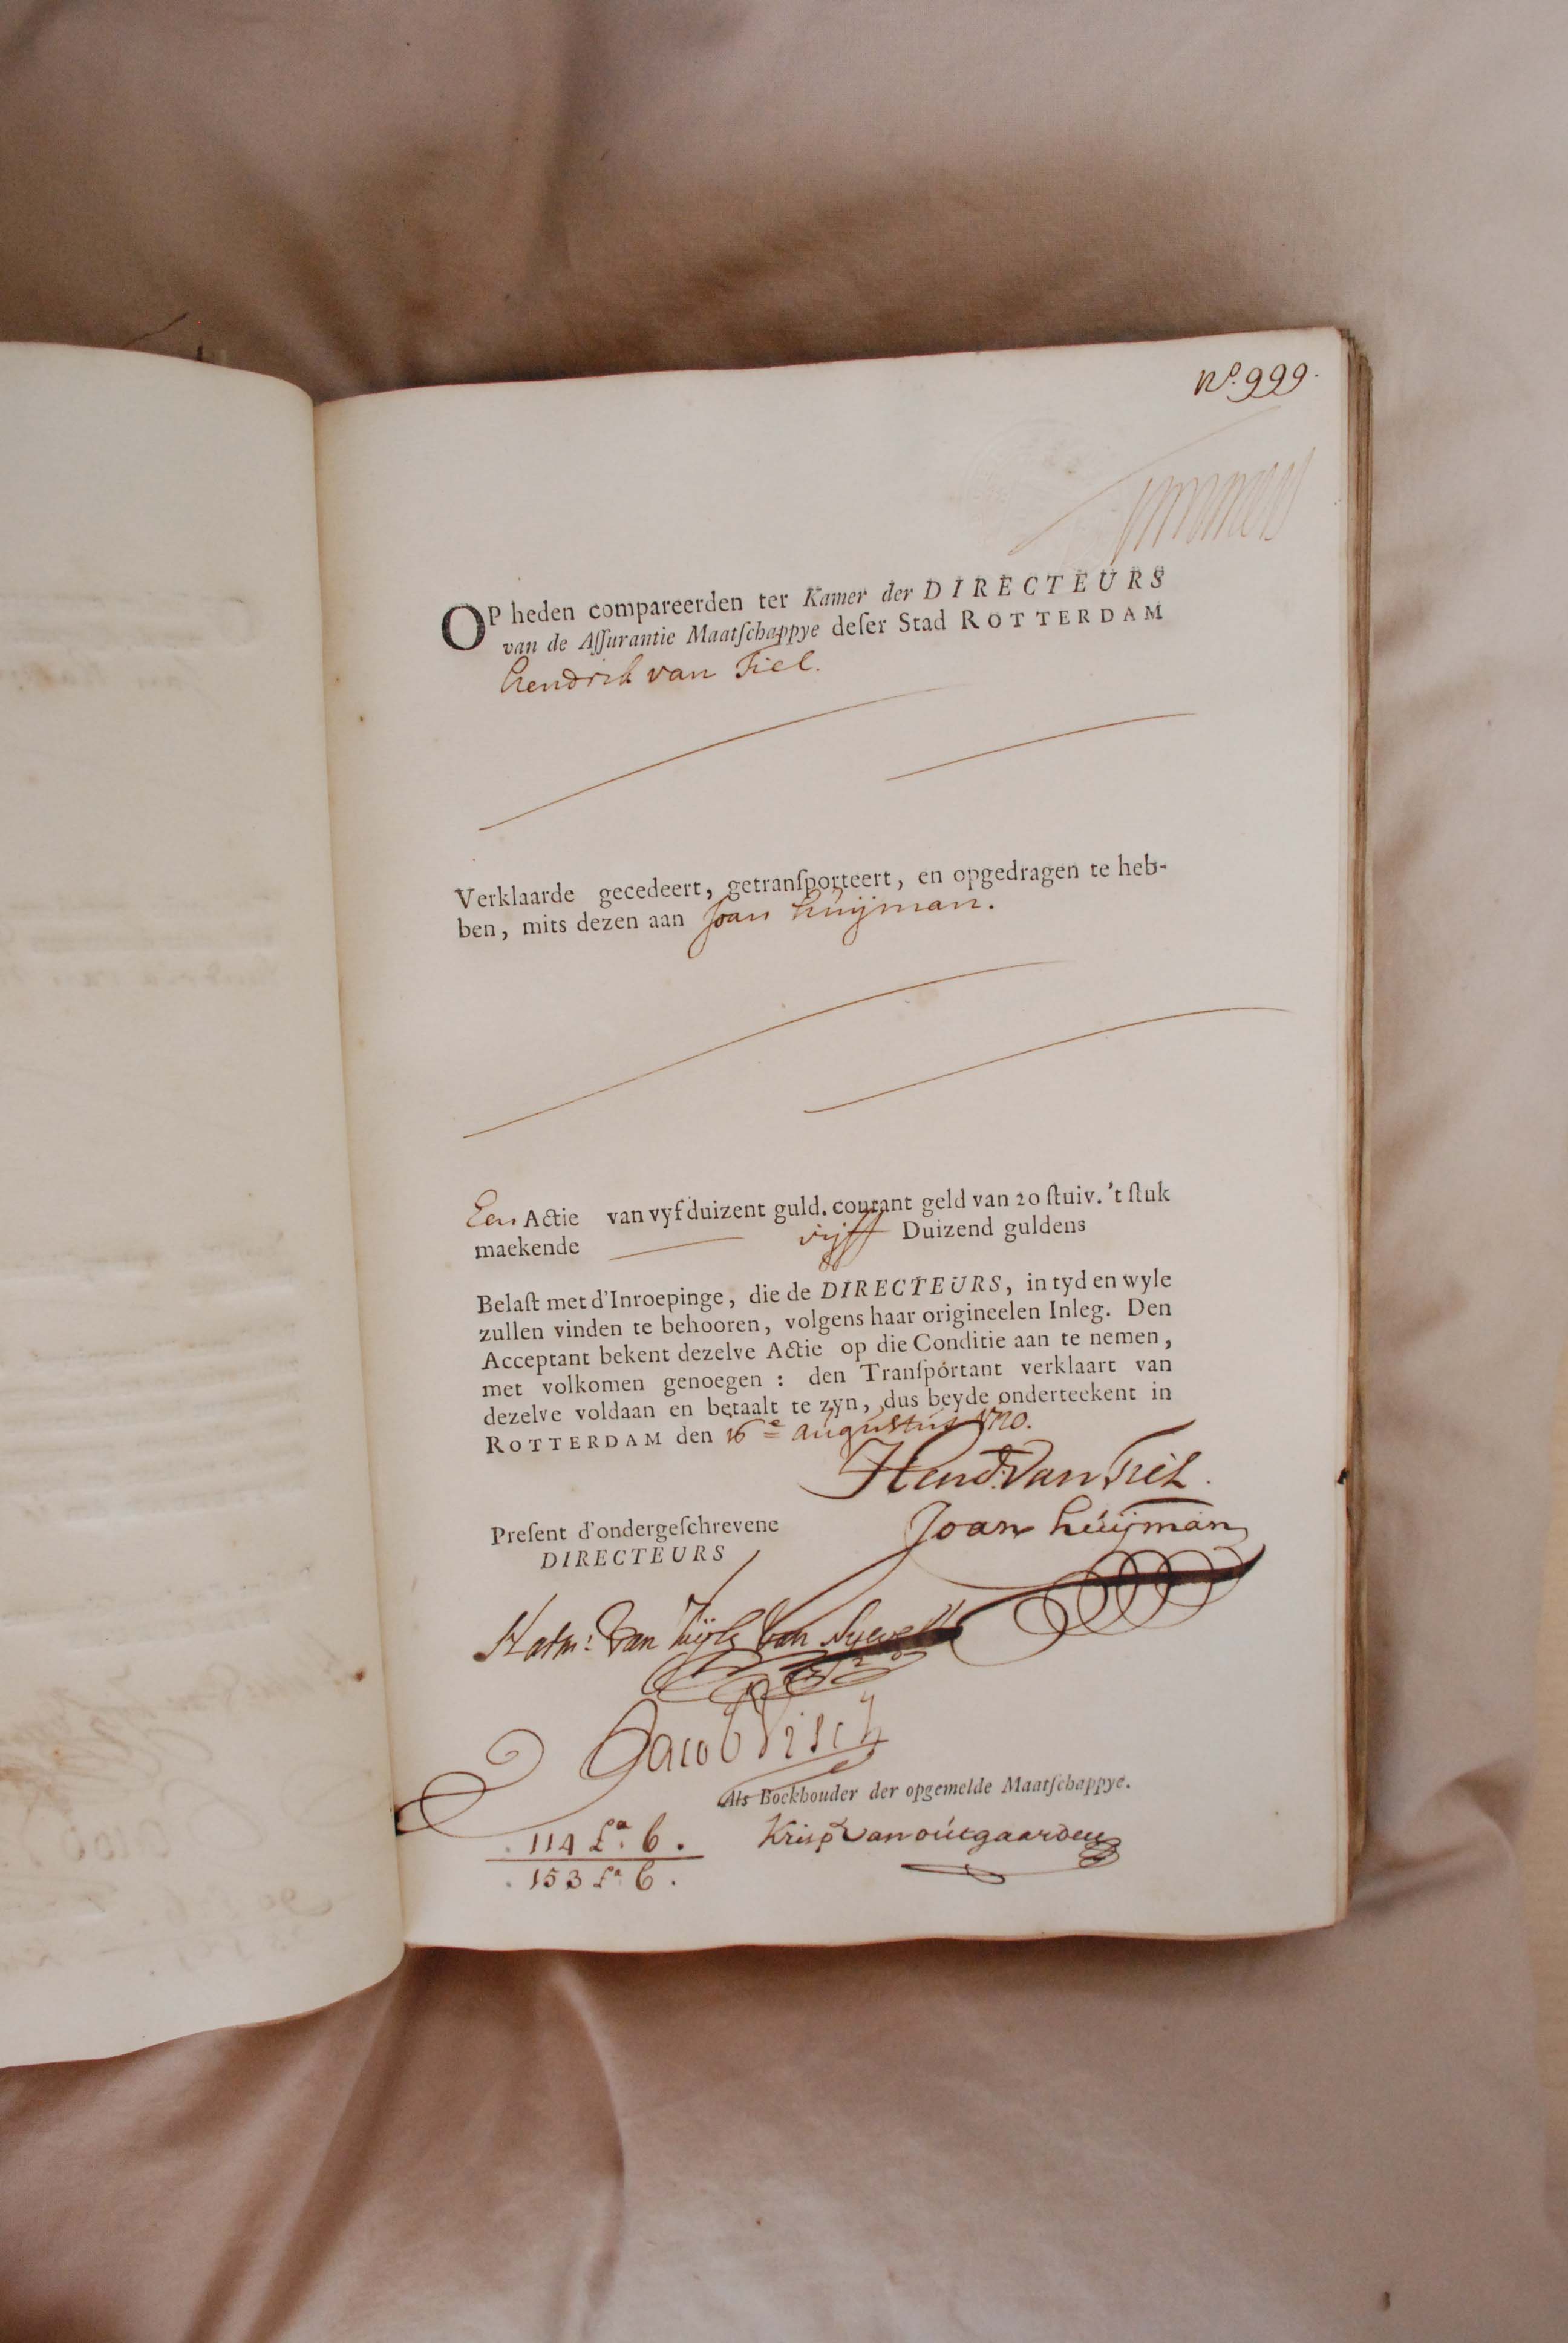 No. 999.
OP heden compareerden ter Kamer der DIRECTEURS
van de Aſſurantie Maatſchappye deſer Stad ROTTERDAM
hendrik van Tiel.
Verklaarde gecedeert, getranſporteert, en opgedragen te heb-
ben, mits dezen aan Joan huijman.
Een Actie van vyf duizent guld. courant geld van 20 ſtuiv. 't ſtuk
maekende vijff Duizend guldens
Belaſt met d'Inroepinge, die de DIRECTEURS, in tyd en wyle
zullen vinden te behooren, volgens haar origineelen Inleg. Den
Acceptant bekent dezelve Actie op die Conditie aan te nemen,
met volkomen genoegen : den Tranſportant verklaart van
dezelve voldaan en betaalt te zyn, dus beyde onderteekent in
ROTTERDAM den 16e augustus 1720.
Hend: Van Tiel.
Joan huijman
Preſent d'ondergeſchrevene
DIRECTEURS
van Zuijle van
Jacob Visch
Als Boekhouder der opgemelde Maatſchappye.
Krisp van outgaarden
114 La. 6.
153 La 6.